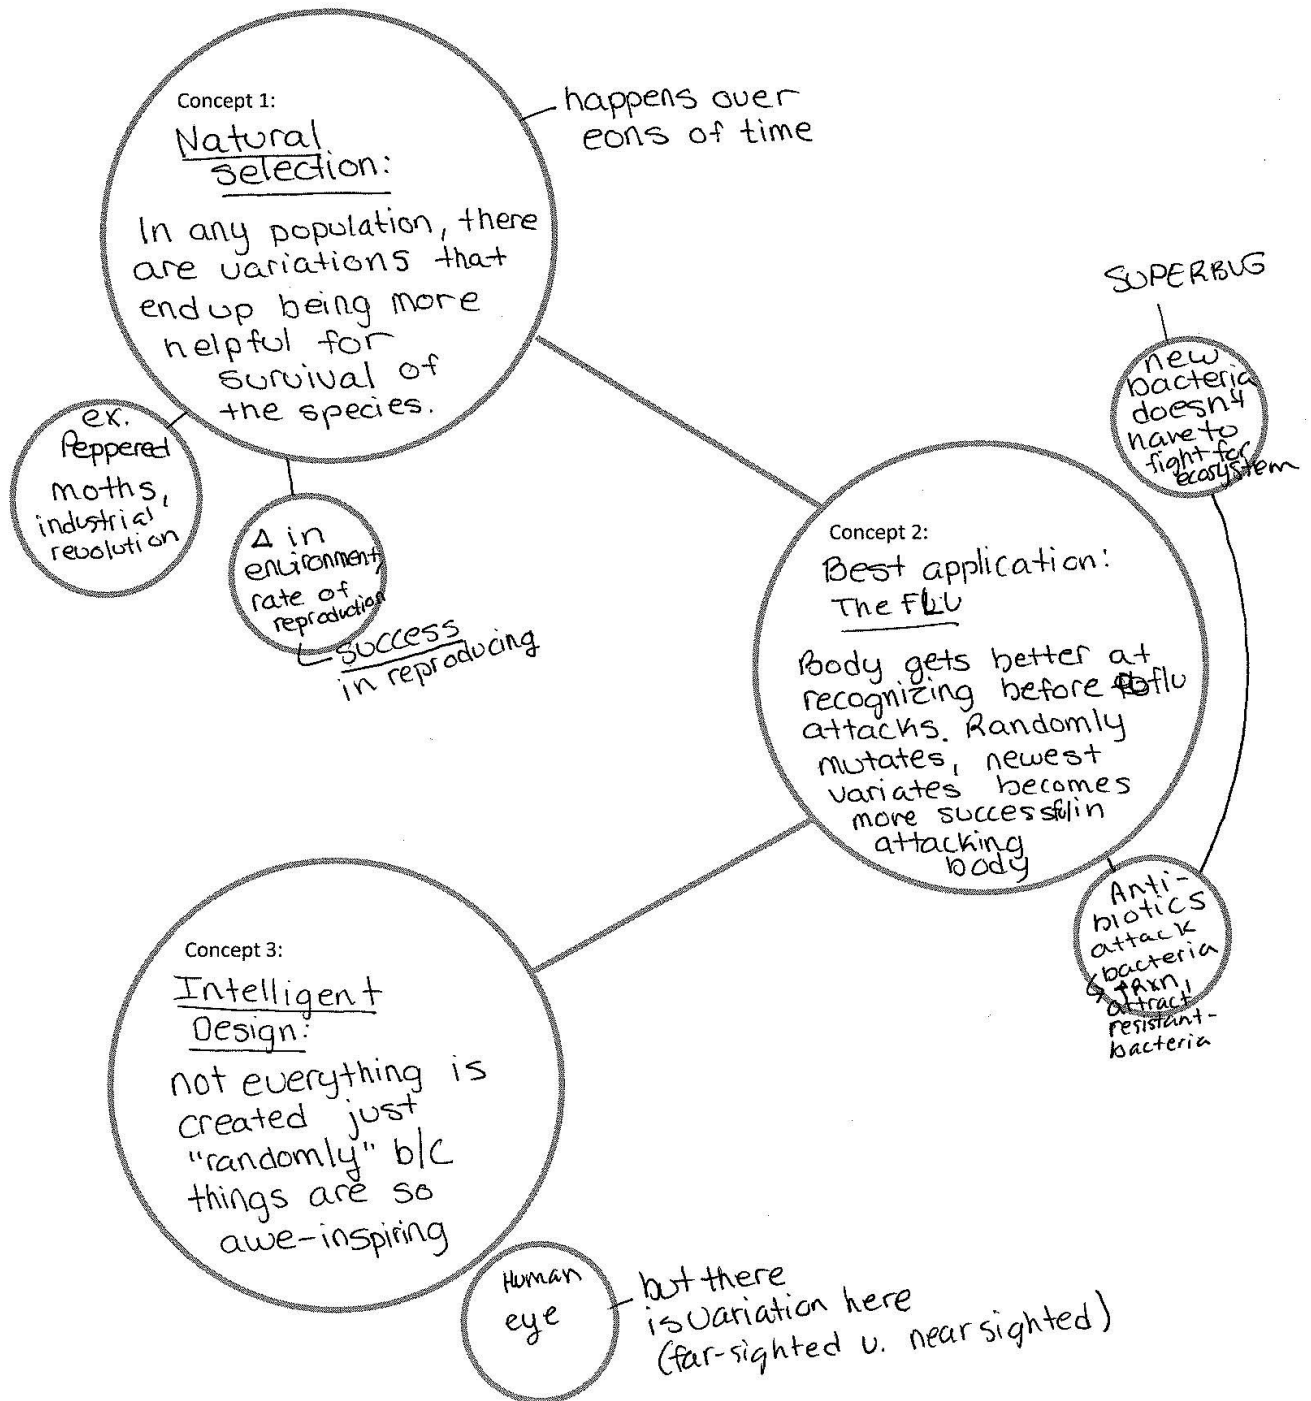 Concept 1:
Natural
selection:
In any population, there
are variations that
end up being more
helpful for
survival of
the species.
happens over
eons of time
ex.
Peppered
moths,
industrial
revolution
Δ in
environment,
rate of
reproduction
success
in reproducing
SUPERBUG
new
bacteria
doesn't
have to
fight for
ecosystem
Concept 2:
Best application:
The FLU
Body gets better at
recognizing before flu
attacks. Randomly
mutates, newest
variates becomes
more successful in
attacking
body
Anti-
biotics
attack
bacteria
↳ ↑Rxn,
attract
resistant-
bacteria
Concept 3:
Intelligent
Design:
not everything is
created just
"randomly" b/c
things are so
awe-inspiring
Human
eye
but there
is variation here
(far-sighted v. near sighted)